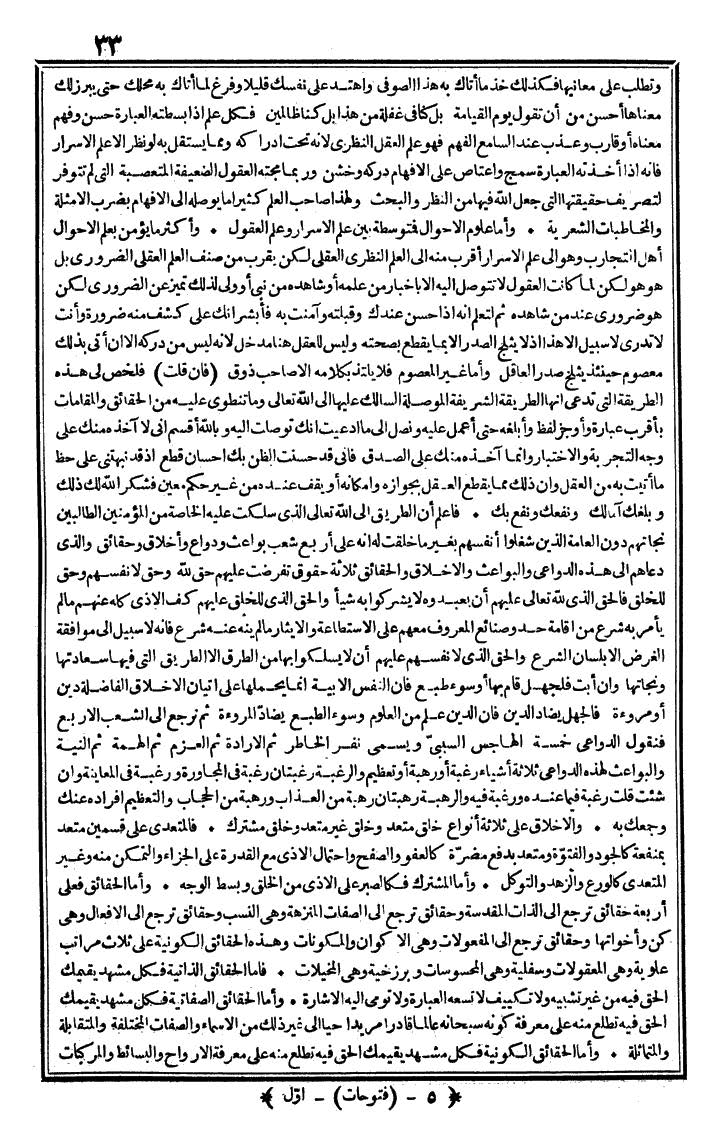 ٣٣
وتطلب على معانيها فكذلك خذ ما أتاك به هذا الصوفى واهتد على نفسك قليلا وفرغ لما أتاك به محلك حتى يبرز لك
معناها أحسن من أن تقول يوم القيامة بل كنا فى غفلة من هذا بل كنا ظالمين فكل علم اذا بسطته العبارة حسن وفهم
معناه أو قارب وعذب عند السامع الفهم فهو علم العقل النظرى لانه تحت ادراكه ومما يستقل به لو نظر الا علم الاسرار
فانه اذا أخذته العبارة سمج واعتاص على الافهام دركه وخشن وربما مجته العقول الضعيفة المتعصبة التى لم تتوفر
لتصريف حقيقتها التى جعل الله فيها من النظر والبحث ولهذا صاحب العلم كثيرا ما يوصله الى الافهام بضرب الامثلة
والمخاطبات الشعرية • وأما علوم الاحوال فمتوسطة بين علم الاسرار وعلم العقول • وأكثر ما يؤمن بعلم الاحوال
أهل التجارب وهو الى علم الاسرار أقرب منه الى العلم النظرى العقلى لكن يقرب من صنف العلم العقلى الضرورى بل
هو هو لكن لما كانت العقول لا تتوصل اليه الا باخبار من علمه أو شاهده من نبى أو ولى لذلك تميز عن الضرورى لكن
هو ضرورى عند من شاهده ثم لتعلم انه اذا حسن عندك وقبلته وآمنت به فأبشر انك على كشف منه ضرورة وأنت
لا تدرى لا سبيل الا هذا اذ لا يثلج الصدر الا بما يقطع بصحته وليس للعقل هنا مدخل لانه ليس من دركه الا ان أتى بذلك
معصوم حينئذ يثلج صدر العاقل وأما غير المعصوم فلا يلتذ بكلامه الا صاحب ذوق (فان قلت) فلخص لى هذه
الطريقة التى تدعى انها الطريقة الشريفة الموصلة السالك عليها الى الله تعالى وما تنطوى عليه من الحقائق والمقامات
بأقرب عبارة وأوجز لفظ وأبلغه حتى أعمل عليه ونصل الى ما ادعيت انك توصات اليه وبالله أقسم انى لا آخذه منك على
وجه التجربة والاختبار وانما آخذه منك على الصدق فانى قد حسنت الظن بك احسان قطع اذ قد نبهتنى على حظ
ما أتيت به من العقل وان ذلك مما يقطع العقل بجوازه وامكانه أو يقف عنده من غير حكم معين فشكر الله لك ذلك
وبلغك آمالك ونفعك ونفع بك • فاعلم أن الطريق الى الله تعالى الذى سلكت عليه الخاصة من المؤمنين الطالبين
نجاتهم دون العامة الذين شغلوا أنفسهم بغير ما خلقت له انه على أربع شعب بواعث ودواع وأخلاق وحقائق والذى
دعاهم الى هذه الدواعى والبواعث والاخلاق والحقائق ثلاثة حقوق تفرضت عليهم حق لله وحق لانفسهم وحق
للخلق فالحق الذى لله تعالى عليهم أن يعبدوه لا يشركوا به شيأ والحق الذى للخلق عليهم كف الاذى كله عنهم ما لم
يأمر به شرع من اقامة حد وصنائع المعروف معهم على الاستطاعة والايثار ما لم ينه عنه شرع فانه لا سبيل الى موافقة
الغرض الا بلسان الشرع والحق الذى لانفسهم عليهم أن لا يسلكوا بها من الطرق الا الطريق التى فيها سعادتها
ونجاتها وان أبت فلجهل قام بها أو سوء طبع فان النفس الابية انما يحملها على اتيان الاخلاق الفاضلة دين
أو مروءة فالجهل يضاد الدين فان الدين علم من العلوم وسوء الطبع يضاد المروءة ثم نرجع الى الشعب الاربع
فنقول الدواعى خمسة الهاجس السببى ويسمى نقر الخاطر ثم الارادة ثم العزم ثم الهمة ثم النية
والبواعث لهذه الدواعى ثلاثة أشياء رغبة أو رهبة أو تعظيم والرغبة رغبتان رغبة فى المجاورة ورغبة فى المعاينة وان
شئت قلت رغبة فيما عنده ورغبة فيه والرهبة رهبتان رهبة من العذاب ورهبة من الحجاب والتعظيم افراده عنك
وجعك به • والاخلاق على ثلاثة أنواع خلق متعد وخلق غير متعد وخلق مشترك • فالمتعدى على قسمين متعد
بمنفعة كالجود والفتوة ومتعد بدفع مضرة كالعفو والصفح واحتمال الاذى مع القدرة على الجزاء والتمكن منه وغير
المتعدى كالورع والزهد والتوكل • وأما المشترك فكالصبر على الاذى من الخلق وبسط الوجه • وأما الحقائق فعلى
أربعة حقائق ترجع الى الذات المقدسة وحقائق ترجع الى الصفات المنزهة وهى النسب وحقائق ترجع الى الافعال وهى
كن وأخواتها وحقائق ترجع الى المفعولات وهى الاكوان والمكونات وهذه الحقائق الكونية على ثلاث مراتب
علوية وهى المعقولات وسفلية وهى المحسوسات وبرزخية وهى المخيلات • فاما الحقائق الذاتية فكل مشهد يقيمك
الحق فيه من غير تشبيه ولا تكييف لا تسعه العبارة ولا تومى اليه الاشارة • وأما الحقائق الصفاتية فكل مشهد يقيمك
الحق فيه تطلع منه على معرفة كونه سبحانه عالما قادرا مريدا حيا الى غير ذلك من الاسماء والصفات المختلفة والمتقابلة
والمتماثلة • وأما الحقائق الكونية فكل مشهد يقيمك الحق فيه تطلع منه على معرفة الارواح والبسائط والمركبات
﴿ ٥ - (فتوحات) - اوّل ﴾